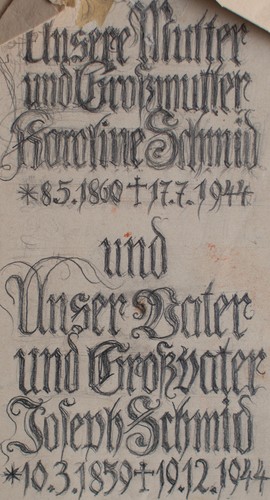 Unsere Mutter
und Großmutter
Karoline Schmid
*8.5.1860 †17.7.1944
und
Unser Vater
und Großvater
Joseph Schmid
*10.3.1859†19.12.1944